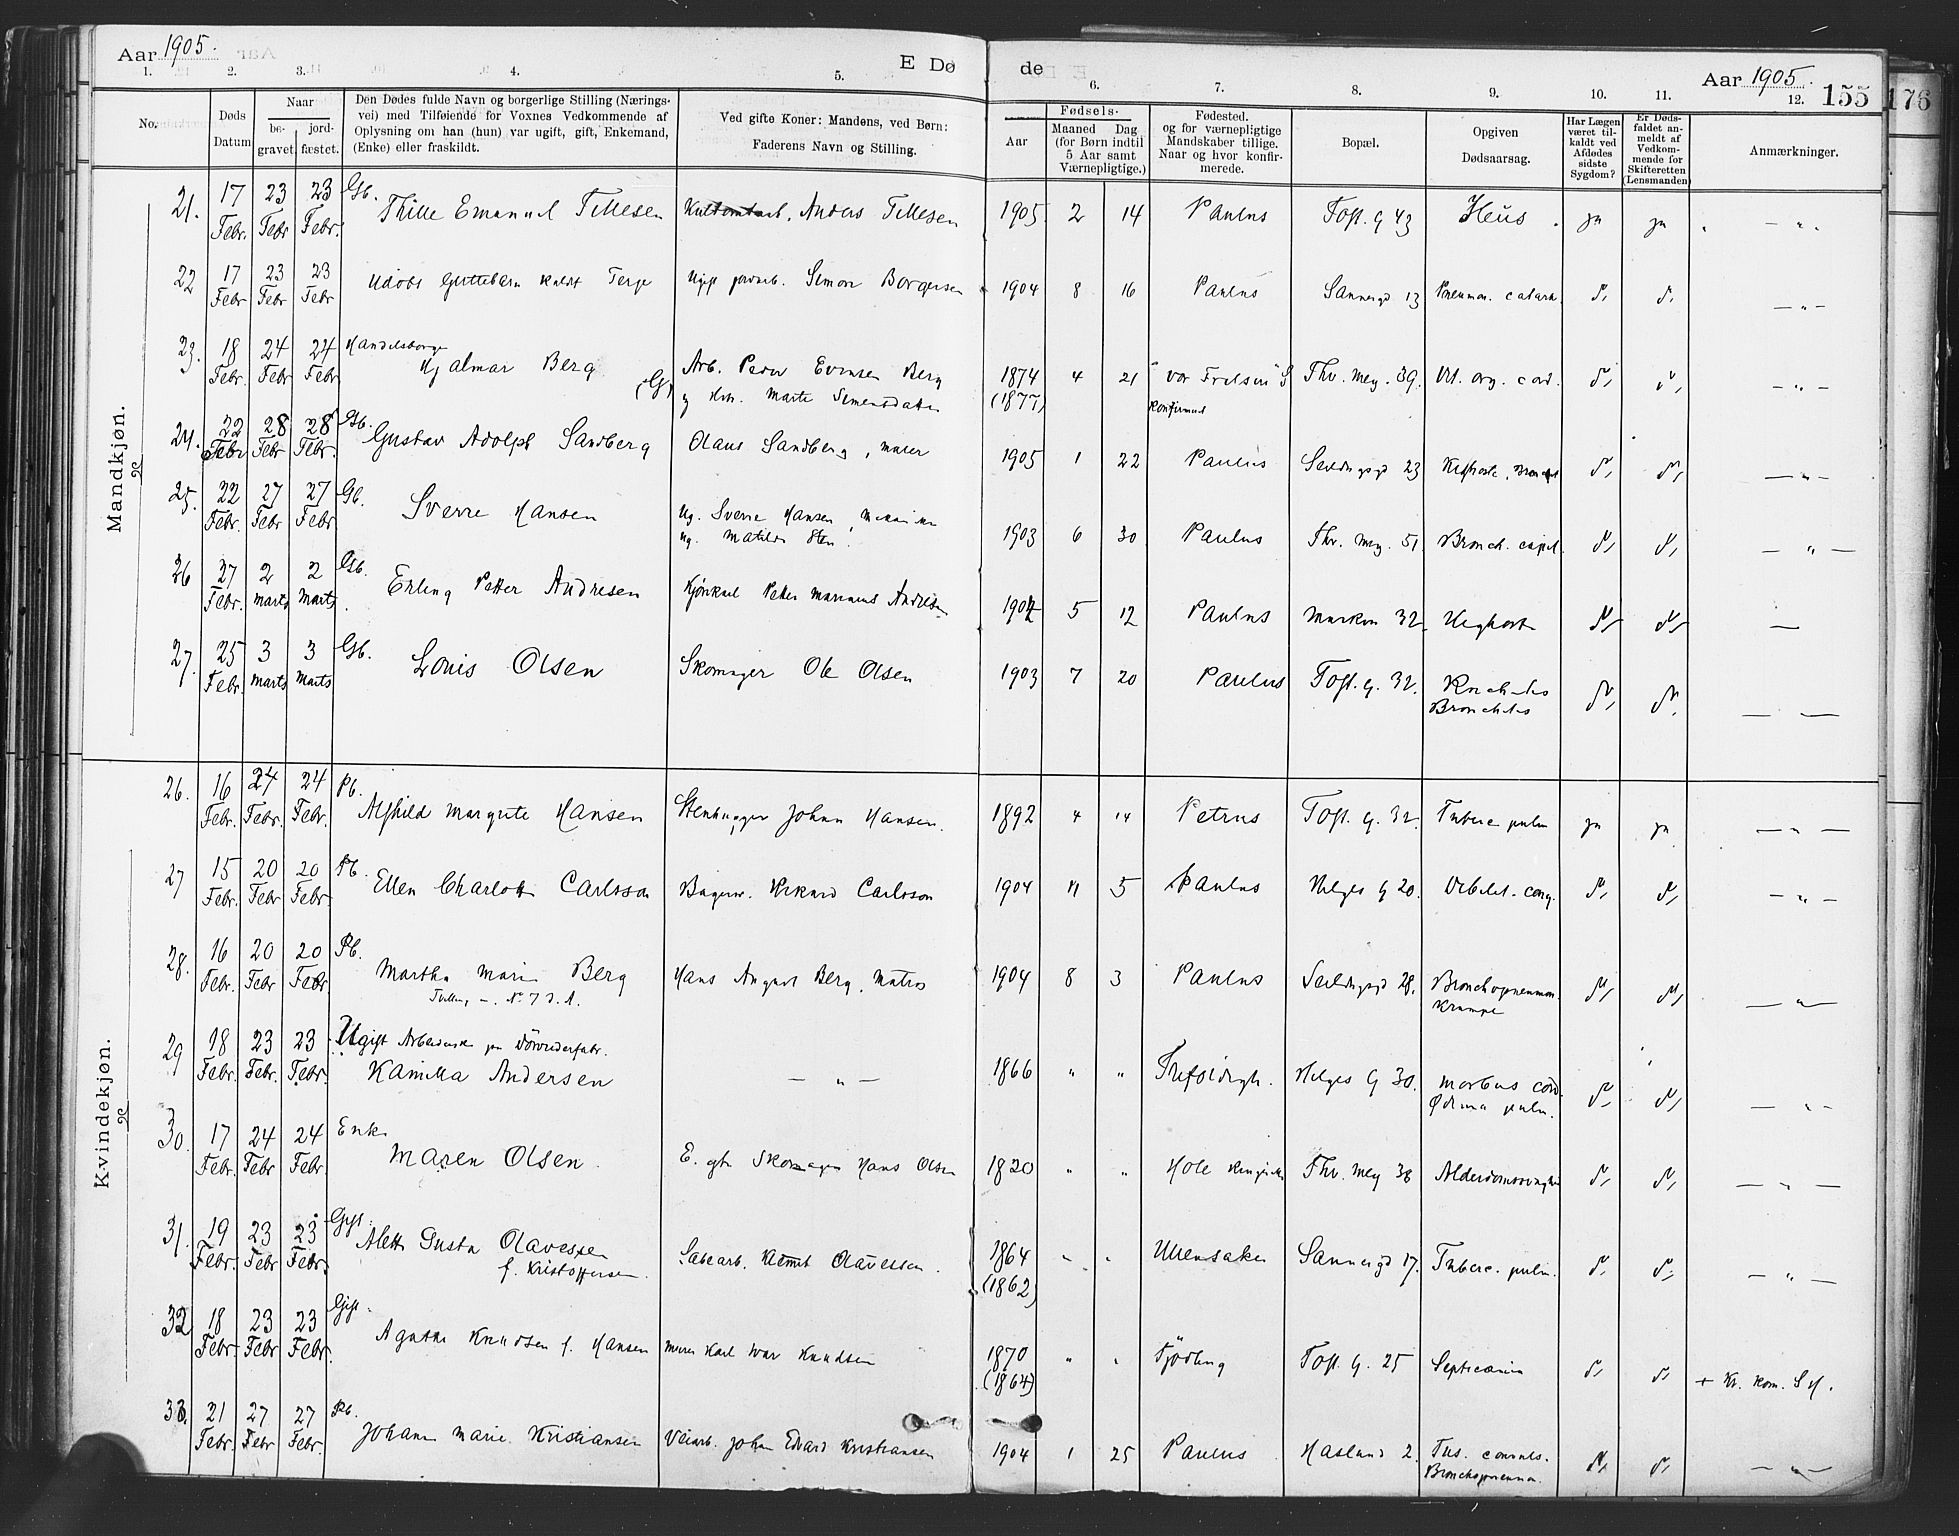 Aar 1905.
E Dø
de
Aar 1905.
155
176
1. 2. 3. 4. 5. 6. 7. 8. 9. 10. 11. 12.
No.
Døds Datum
Naar
be- gravet.
jord- fæstet.
Den Dødes fulde Navn og borgerlige Stilling (Nærings-
vei) med Tilføiende for Voxnes Vedkommende af
Oplysning om han (hun) var ugift, gift, Enkemand,
(Enke) eller fraskildt.
Ved gifte Koner: Mandens, ved Børn:
Faderens Navn og Stilling.
Fødsels-
Aar
Maaned Dag
(for Børn indtil
5 Aar samt
Værnepligtige.)
Fødested.
og for værnepligtige
Mandskaber tillige.
Naar og hvor konfir-
merede.
Bopæl.
Opgiven
Dødsaarsag.
Har Lægen
været til-
kaldt ved
Afdødes
sidste
Sygdom?
Er Døds-
faldet an-
meldt af
Vedkom-
mende for
Skifteretten
(Lensmanden)
Anmærkninger.
Mandkjøn.
21. 17 Febr. 23 Febr 23 Febr. Gb. Thille Emanuel Tellesen Anders Tellesen 1905 2 14 Paulus Toft. g 43 ja ja — „ —
22 17 Febr 23 Febr 23 Febr Udøbt Guttebarn kaldt Terje Ugift Simon Borgersen 1904 8 16 Paulus Sannergd 13 Pneumon. catarrh. d. d. — „ —
23. 18 Febr. 24 Febr 24 Febr Handelsborger
Hjalmar Berg (G) Arb. Peder Evensen Berg
og Marte Simensdatter 1874 (1877) 4 21 "vor Frelsers" Thv. Mey. 39. Vit. org. cord. d. d. — „ —
Konfirmert
24. 22 Febr 28 Febr 28 Febr. Gb. Gustav Adolph Sandberg Olaus Sandberg, maler 1905 1 22 Paulus Seildugsgd 23 Kighoste, d. d. — „ —
25. 22 Febr. 27 Febr 27 Febr Gb. Sverre Hansen Ug. Sverre Hansen,
ug. Matilde 1903 6 30 Paulus Thv. Mey. 51. Bronch. capil. d. d. — „ —
26 27 Febr. 2 Marts 2 Marts Gb. Erling Petter Andresen Petter Marinius Andresen 1904 5 12 Paulus Markv 32. Kighoste d. d. —
27. 25 Febr. 3 Marts 3 Marts Gb. Louis Olsen Skomager Ole Olsen 1903 7 20 Paulus Toft. g. 32. Rachitis
Bronchitis d. d. — —
Kvindekjøn.
26. 16 Febr. 24 Febr. 24 Febr. Pb. Alfhild Margrete Hansen Stenhugger Johan Hansen. 1892 4 14 Petrus Toft. g. 32. Tuberc pulm ja ja — „ —
27 15 Febr. 20 Febr 20 Febr. Pb. Ellen Charlotte Carlsson Rikard Carlsson 1904 11 5 Paulus Helges G 20. Debilit. cong. d. d. — „ —
28. 16 Febr. 20 Febr 20 Febr Pb. Martha Marie Berg
Tvilling —. N° 7 d. A. Hans August Berg, Matros 1904 8 3 Paulus Seildugsgd 28. Bronchopneumon.
Krampe d. d. — „ —
29 18 Febr. 23 Febr. 23 Febr. Ugift Arbeiderske
Kamilla Andersen — „ — 1866 „ „ Trefoldigh. Helges G 30. Morbus cord.
Ødema pulm. d. d. — „ —
30. 17 Febr. 24 Febr 24 Febr. Enke
Maren Olsen. E. eft. Skomager Hans Olsen 1820 „ „ Hole Ringerike Thv. Mey 38 d. d. — „ —
31. 19 Febr. 23 Febr 23 Febr. Gift.
Alette Gusta Olavesen
f. Kristoffersen. Olavesen. 1864 (1862) „ „ Ullensaker Sannergd 17. Tuberc. pulm. d. d. — „ —
32 18 Febr. 23 Febr. 23 Febr. Gift.
Agathe Knudsen f. Hansen Murer Karl Ivar Knudsen 1870 (1864) „ „ Fjödling Toft. G. 25 Septicæmi d. d. + Kr. kom. S H.
33. 21 Febr. 27 Febr 27 Febr. Pb. Johanne Marie Kristiansen Veiarb. Johan Edvard Kristiansen 1904 1 25 Paulus Haslund 2. Tus. convuls.
Bronchopneumon. d. d. — „ —